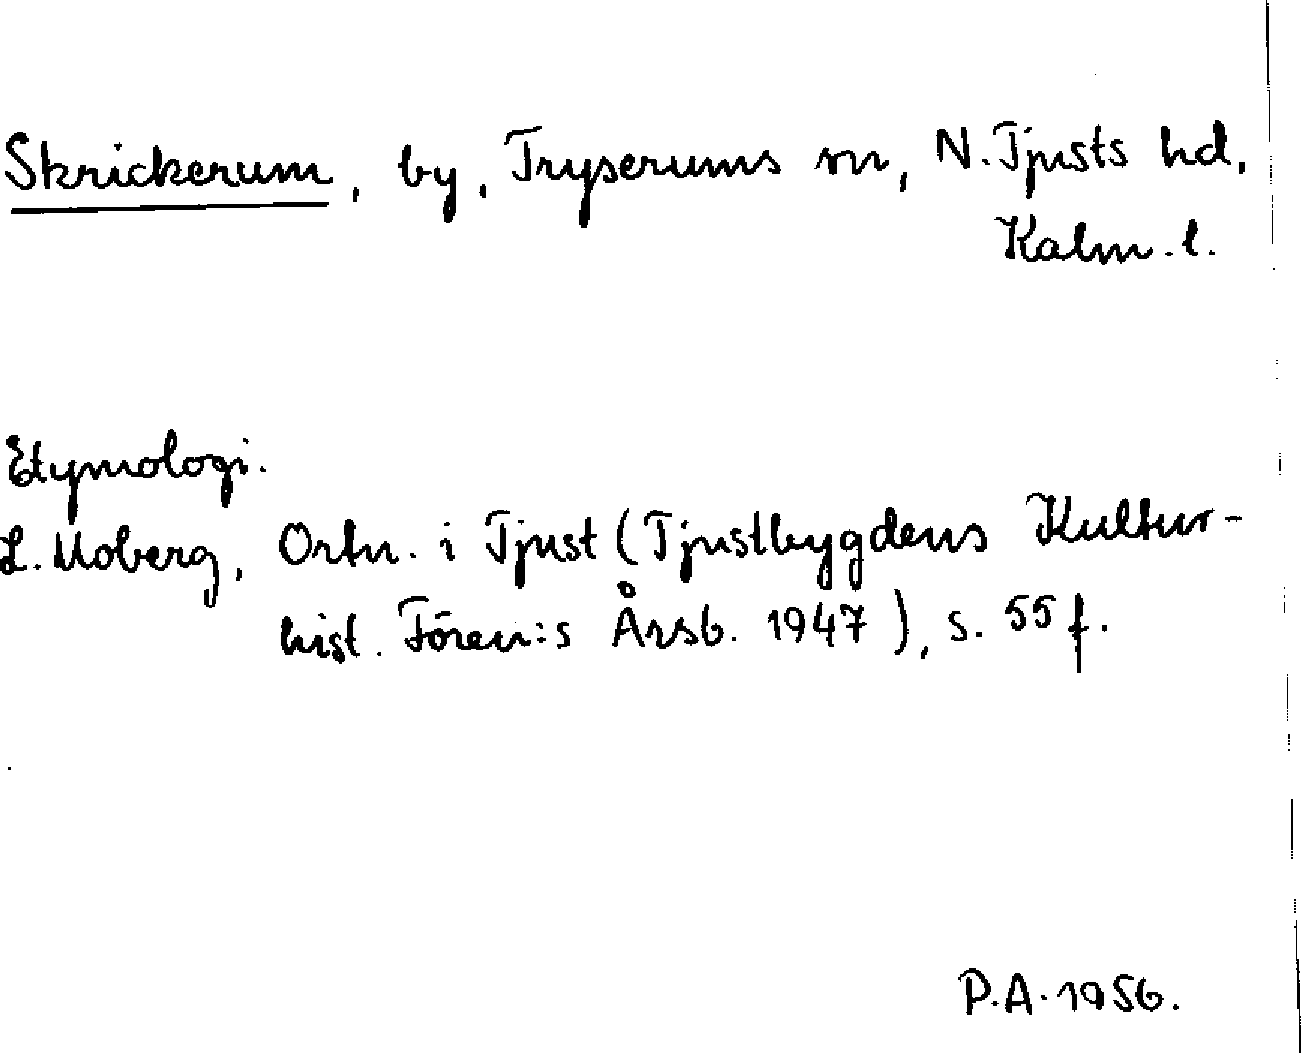 Skrickerum, by, Tryserums sn, N. Tjusts hd,
Kalm. l.
Etymologi.
L. Moberg, Ortn. i Tjust (Tjustbygdens Kultur-
hist. Fören:s Årsb. 1947), s. 55 f.
P.A. 1956.